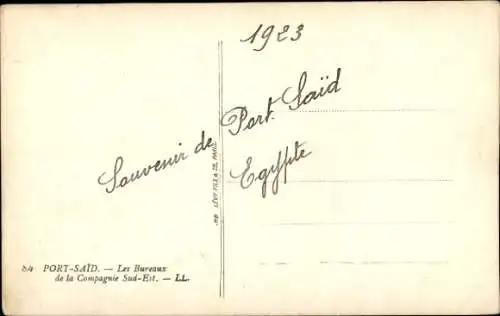 1923
Souvenir de Port. Saïd
Egypte
LÉVY FILS & CIE, PARIS
84 PORT-SAÏD. — Les Bureaux
de la Compagnie Sud-Est. — LL.